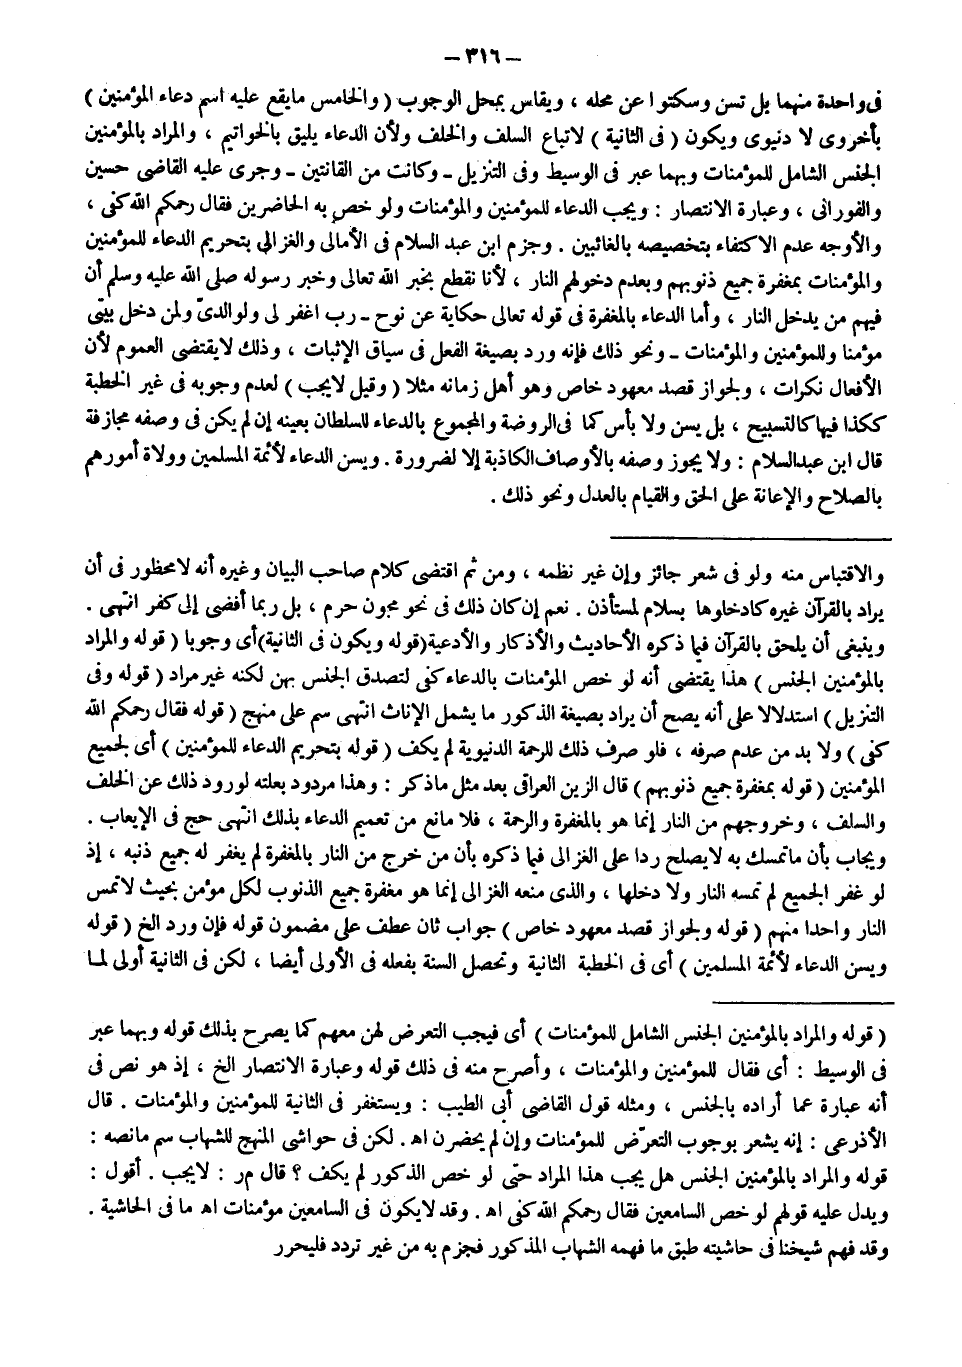 — ٣١٦ —
فى واحدة منهما بل تسن وسكتوا عن محله ، ويقاس بمحل الوجوب ( والخامس مايقع عليه اسم دعاء المؤمنين )
بأخروى لا دنيوى ويكون ( فى الثانية ) لاتباع السلف والخلف ولأن الدعاء يليق بالخواتيم ، والمراد بالمؤمنين
الجنس الشامل للمؤمنات وبهما عبر فى الوسيط وفى التنزيل ــ وكانت من القانتين ــ وجرى عليه القاضى حسين
والفورانى ، وعبارة الانتصار : ويجب الدعاء للمؤمنين والمؤمنات ولو خص به الحاضرين فقال رحمكم الله كفى ،
والأوجه عدم الاكتفاء بتخصيصه بالغائبين . وجزم ابن عبد السلام فى الأمالى والغزالى بتحريم الدعاء للمؤمنين
والمؤمنات بمغفرة جميع ذنوبهم وبعدم دخولهم النار ، لأنا نقطع بخبر الله تعالى وخبر رسوله صلى الله عليه وسلم أن
فيهم من يدخل النار ، وأما الدعاء بالمغفرة فى قوله تعالى حكاية عن نوح ــ رب اغفر لى ولوالدىّ ولمن دخل بيتى
مؤمنا وللمؤمنين والمؤمنات ــ ونحو ذلك فإنه ورد بصيغة الفعل فى سياق الإثبات ، وذلك لايقتضى العموم لأن
الأفعال نكرات ، ولجواز قصد معهود خاص وهو أهل زمانه مثلا ( وقيل لايجب ) لعدم وجوبه فى غير الخطبة
ككذا فيها كالتسبيح ، بل يسن ولا بأس كما فى الروضة والمجموع بالدعاء للسلطان بعينه إن لم يكن فى وصفه مجازفة
قال ابن عبدالسلام : ولا يجوز وصفه بالأوصاف الكاذبة إلا لضرورة . ويسن الدعاء لأئمة المسلمين وولاة أمورهم
بالصلاح والإعانة على الحق والقيام بالعدل ونحو ذلك .
والاقتباس منه ولو فى شعر جائز وإن غير نظمه ، ومن ثم اقتضى كلام صاحب البيان وغيره أنه لا محظور فى أن
يراد بالقرآن غيره كادخلوها بسلام لمستأذن . نعم إن كان ذلك فى نحو مجون حرم ، بل ربما أفضى إلى كفر انتهى .
وينبغى أن يلحق بالقرآن فيما ذكره الأحاديث والأذكار والأدعية (قوله ويكون فى الثانية) أى وجوبا ( قوله والمراد
بالمؤمنين الجنس ) هذا يقتضى أنه لو خص المؤمنات بالدعاء كفى لتصدق الجنس بهن لكنه غير مراد ( قوله وفى
التنزيل ) استدلالا على أنه يصح أن يراد بصيغة الذكور ما يشمل الإناث انتهى سم على منهج ( قوله فقال رحمكم الله
كفى ) ولا بد من عدم صرفه ، فلو صرف ذلك للرحمة الدنيوية لم يكف ( قوله بتحريم الدعاء للمؤمنين ) أى لجميع
المؤمنين ( قوله بمغفرة جميع ذنوبهم ) قال الزين العراقى بعد مثل ماذكر : وهذا مردود بعلته لورود ذلك عن الخلف
والسلف ، وخروجهم من النار إنما هو بالمغفرة والرحمة ، فلا مانع من تعميم الدعاء بذلك انتهى حج فى الإيعاب .
ويجاب بأن ماتمسك به لايصلح ردا على الغزالى فيما ذكره بأن من خرج من النار بالمغفرة لم يغفر له جميع ذنبه ، إذ
لو غفر الجميع لم تمسه النار ولا دخلها ، والذى منعه الغزالى إنما هو مغفرة جميع الذنوب لكل مؤمن بحيث لاتمس
النار واحدا منهم ( قوله ولجواز قصد معهود خاص ) جواب ثان عطف على مضمون قوله فإن ورد الخ ( قوله
ويسن الدعاء لأئمة المسلمين ) أى فى الخطبة الثانية وتحصل السنة بفعله فى الأولى أيضا ، لكن فى الثانية أولى لما
( قوله والمراد بالمؤمنين الجنس الشامل للمؤمنات ) أى فيجب التعرض لهن معهم كما يصرح بذلك قوله وبهما عبر
فى الوسيط : أى فقال للمؤمنين والمؤمنات ، وأصرح منه فى ذلك قوله وعبارة الانتصار الخ ، إذ هو نص فى
أنه عبارة عما أراده بالجنس ، ومثله قول القاضى أبى الطيب : ويستغفر فى الثانية للمؤمنين والمؤمنات . قال
الأذرعى : إنه يشعر بوجوب التعرّض للمؤمنات وإن لم يحضرن اهـ . لكن فى حواشى المنهج للشهاب سم مانصه :
قوله والمراد بالمؤمنين الجنس هل يجب هذا المراد حتى لو خص الذكور لم يكف ؟ قال مر : لايجب . أقول :
ويدل عليه قولهم لو خص السامعين فقال رحمكم الله كفى اهـ . وقد لايكون فى السامعين مؤمنات اهـ ما فى الحاشية .
وقد فهم شيخنا فى حاشيته طبق ما فهمه الشهاب المذكور فجزم به من غير تردد فليحرر